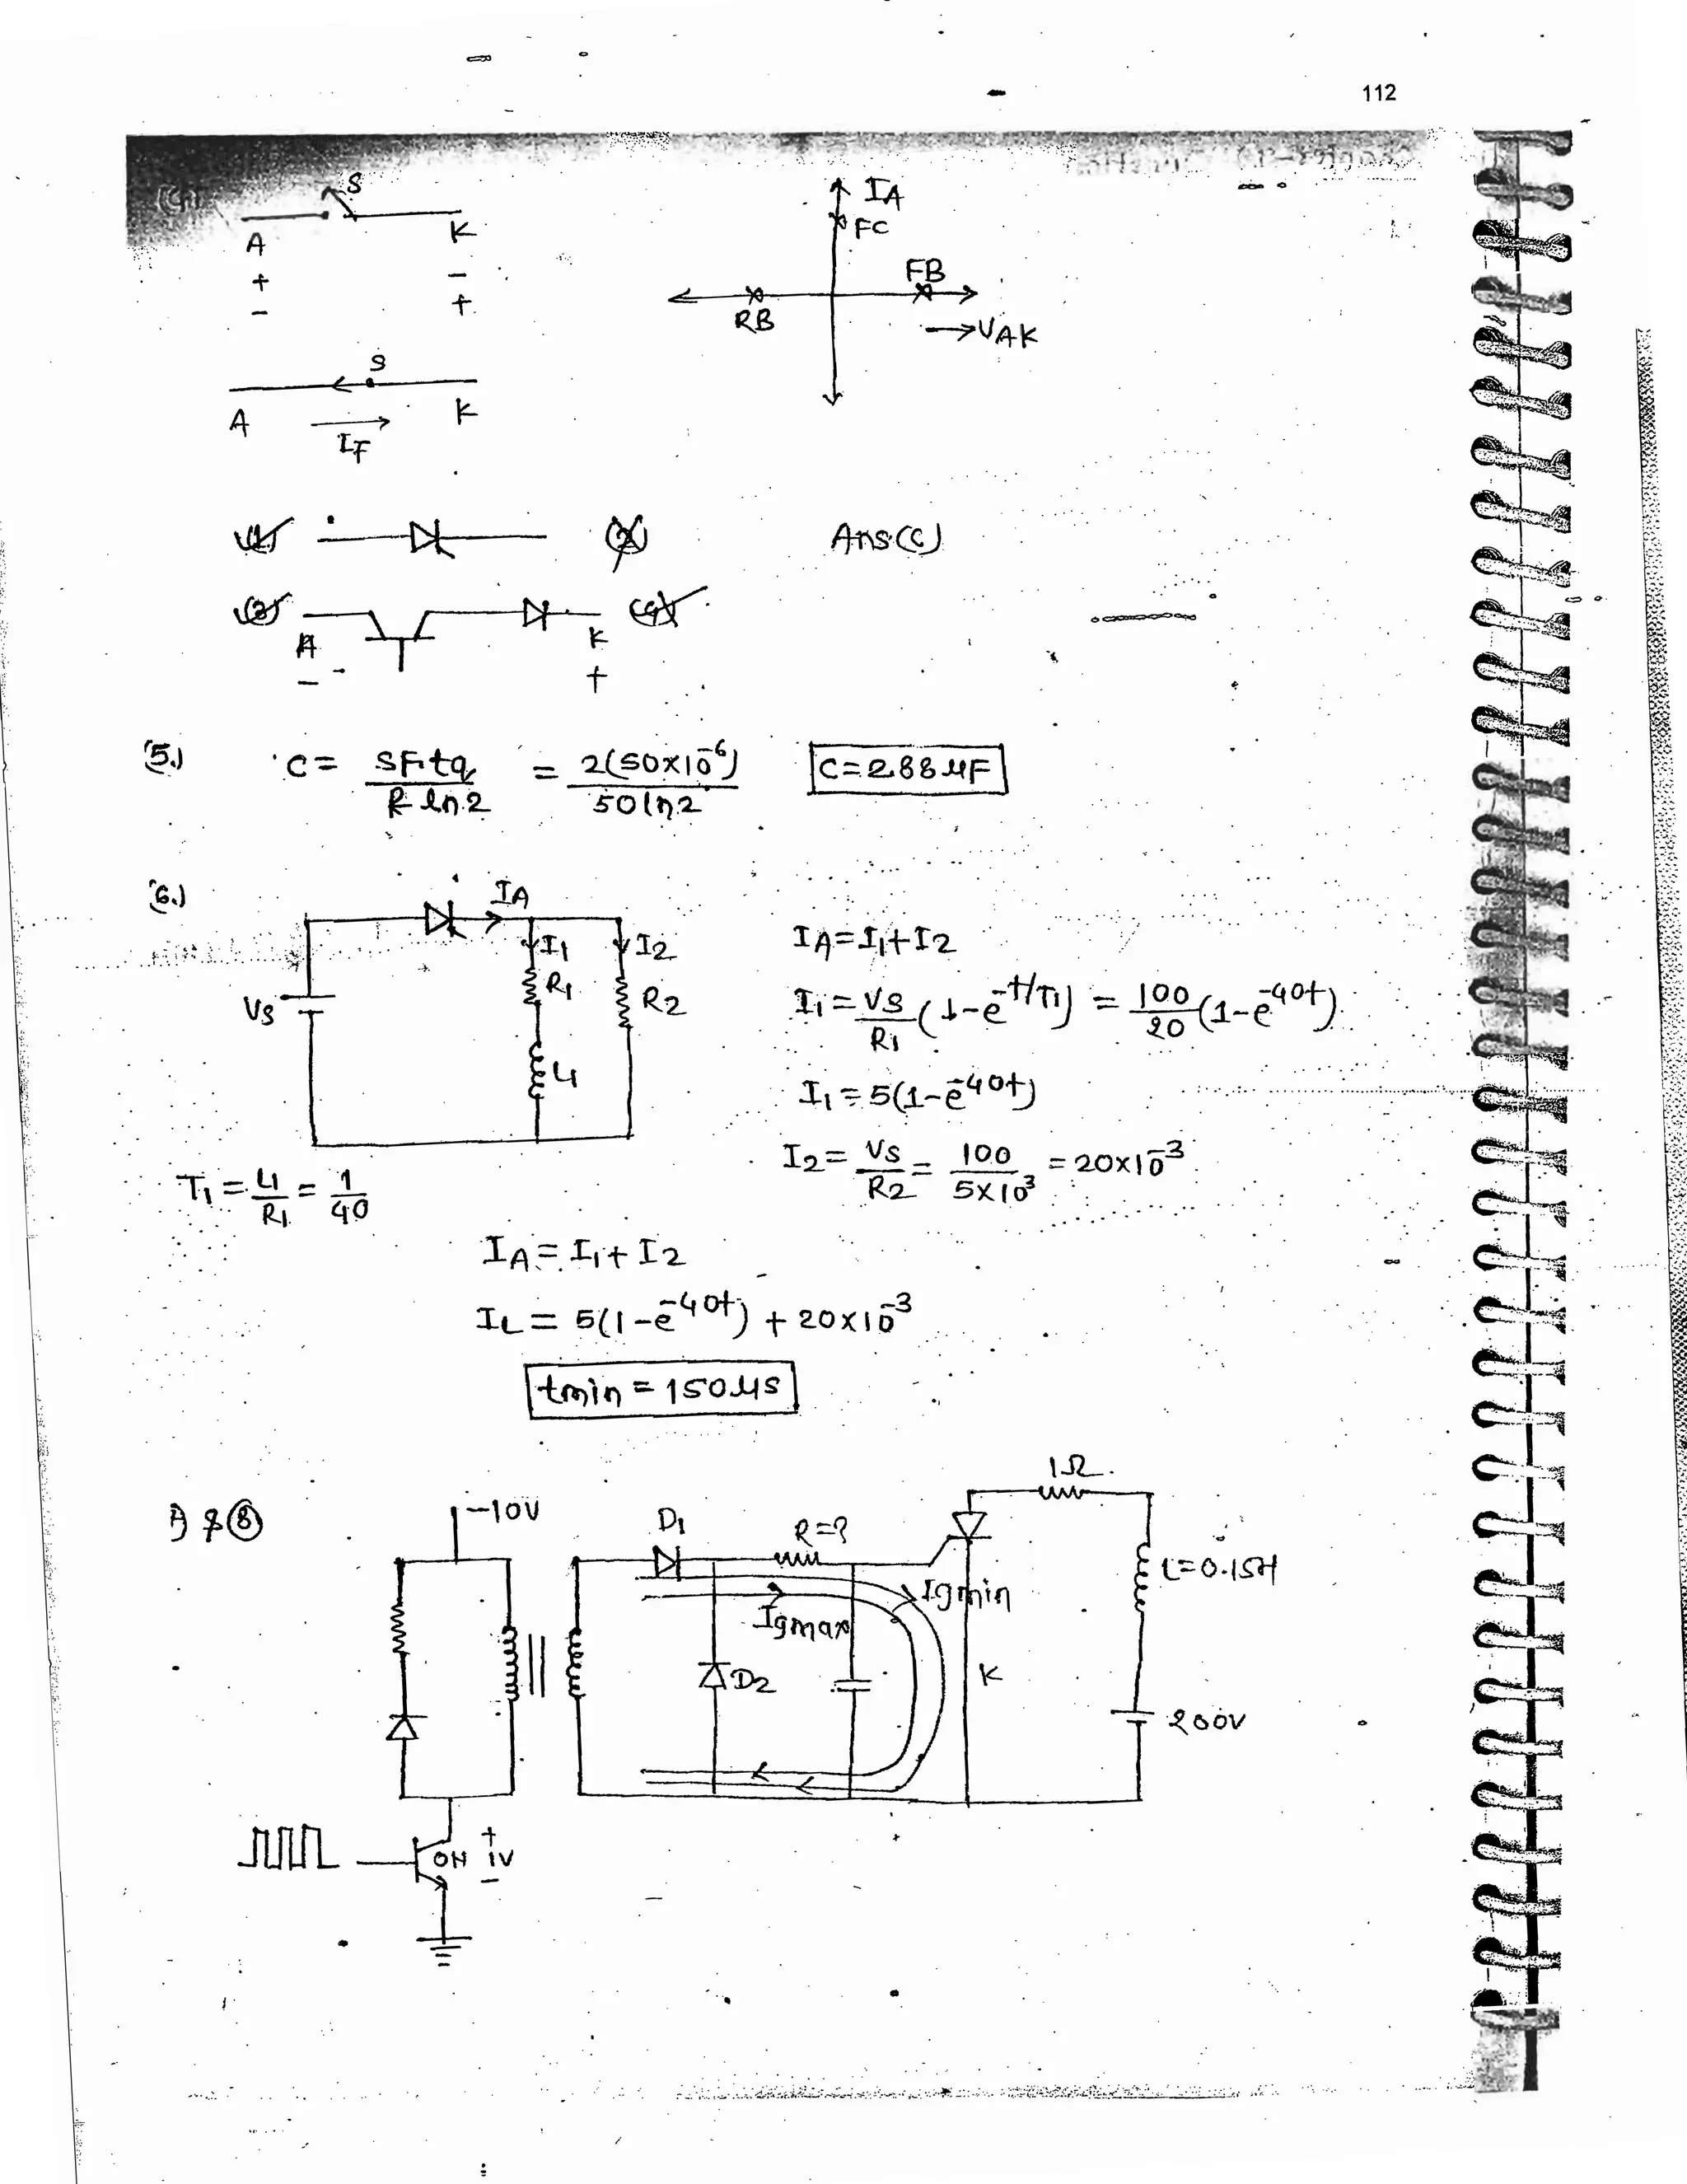 112
(4)
S
A K
+ -
- +
IA
FC
FB
RB
→VAK
S
A K
IF
(1)
(2)
Ans(c)
(3)
(4)
A K
- +
(5.) C = SF·tq / R ln2 = 2(50×10⁻⁶) / 50ln2 C=2.88μF
(6.)
IA
I1 I2
R1 R2
Vs
L1
IA=I1+I2
I1 = Vs/R1 (1-e^-t/T1) = 100/20 (1-e^-40t)
I1 = 5(1-e^-40t)
I2 = Vs/R2 = 100/5×10³ = 20×10⁻³
T1 = L1/R1 = 1/40
IA = I1+I2
IL = 5(1-e^-40t) + 20×10⁻³
tmin = 150μs
7) & (8)
-10V
D1
R=?
1Ω
L=0.15H
Igmin
Igmax
D2
K
200V
ON
+
1V
-